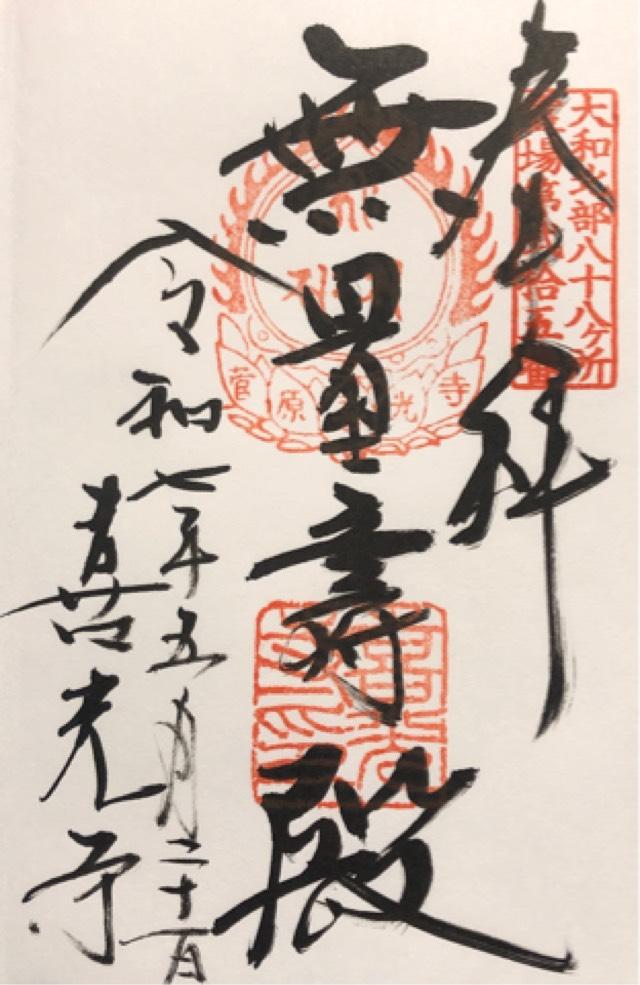 大和北部八十八ヶ所
霊場第拾五番
奉拝
無量壽殿
菅原喜光寺
令和七年五月二十一日
喜光寺